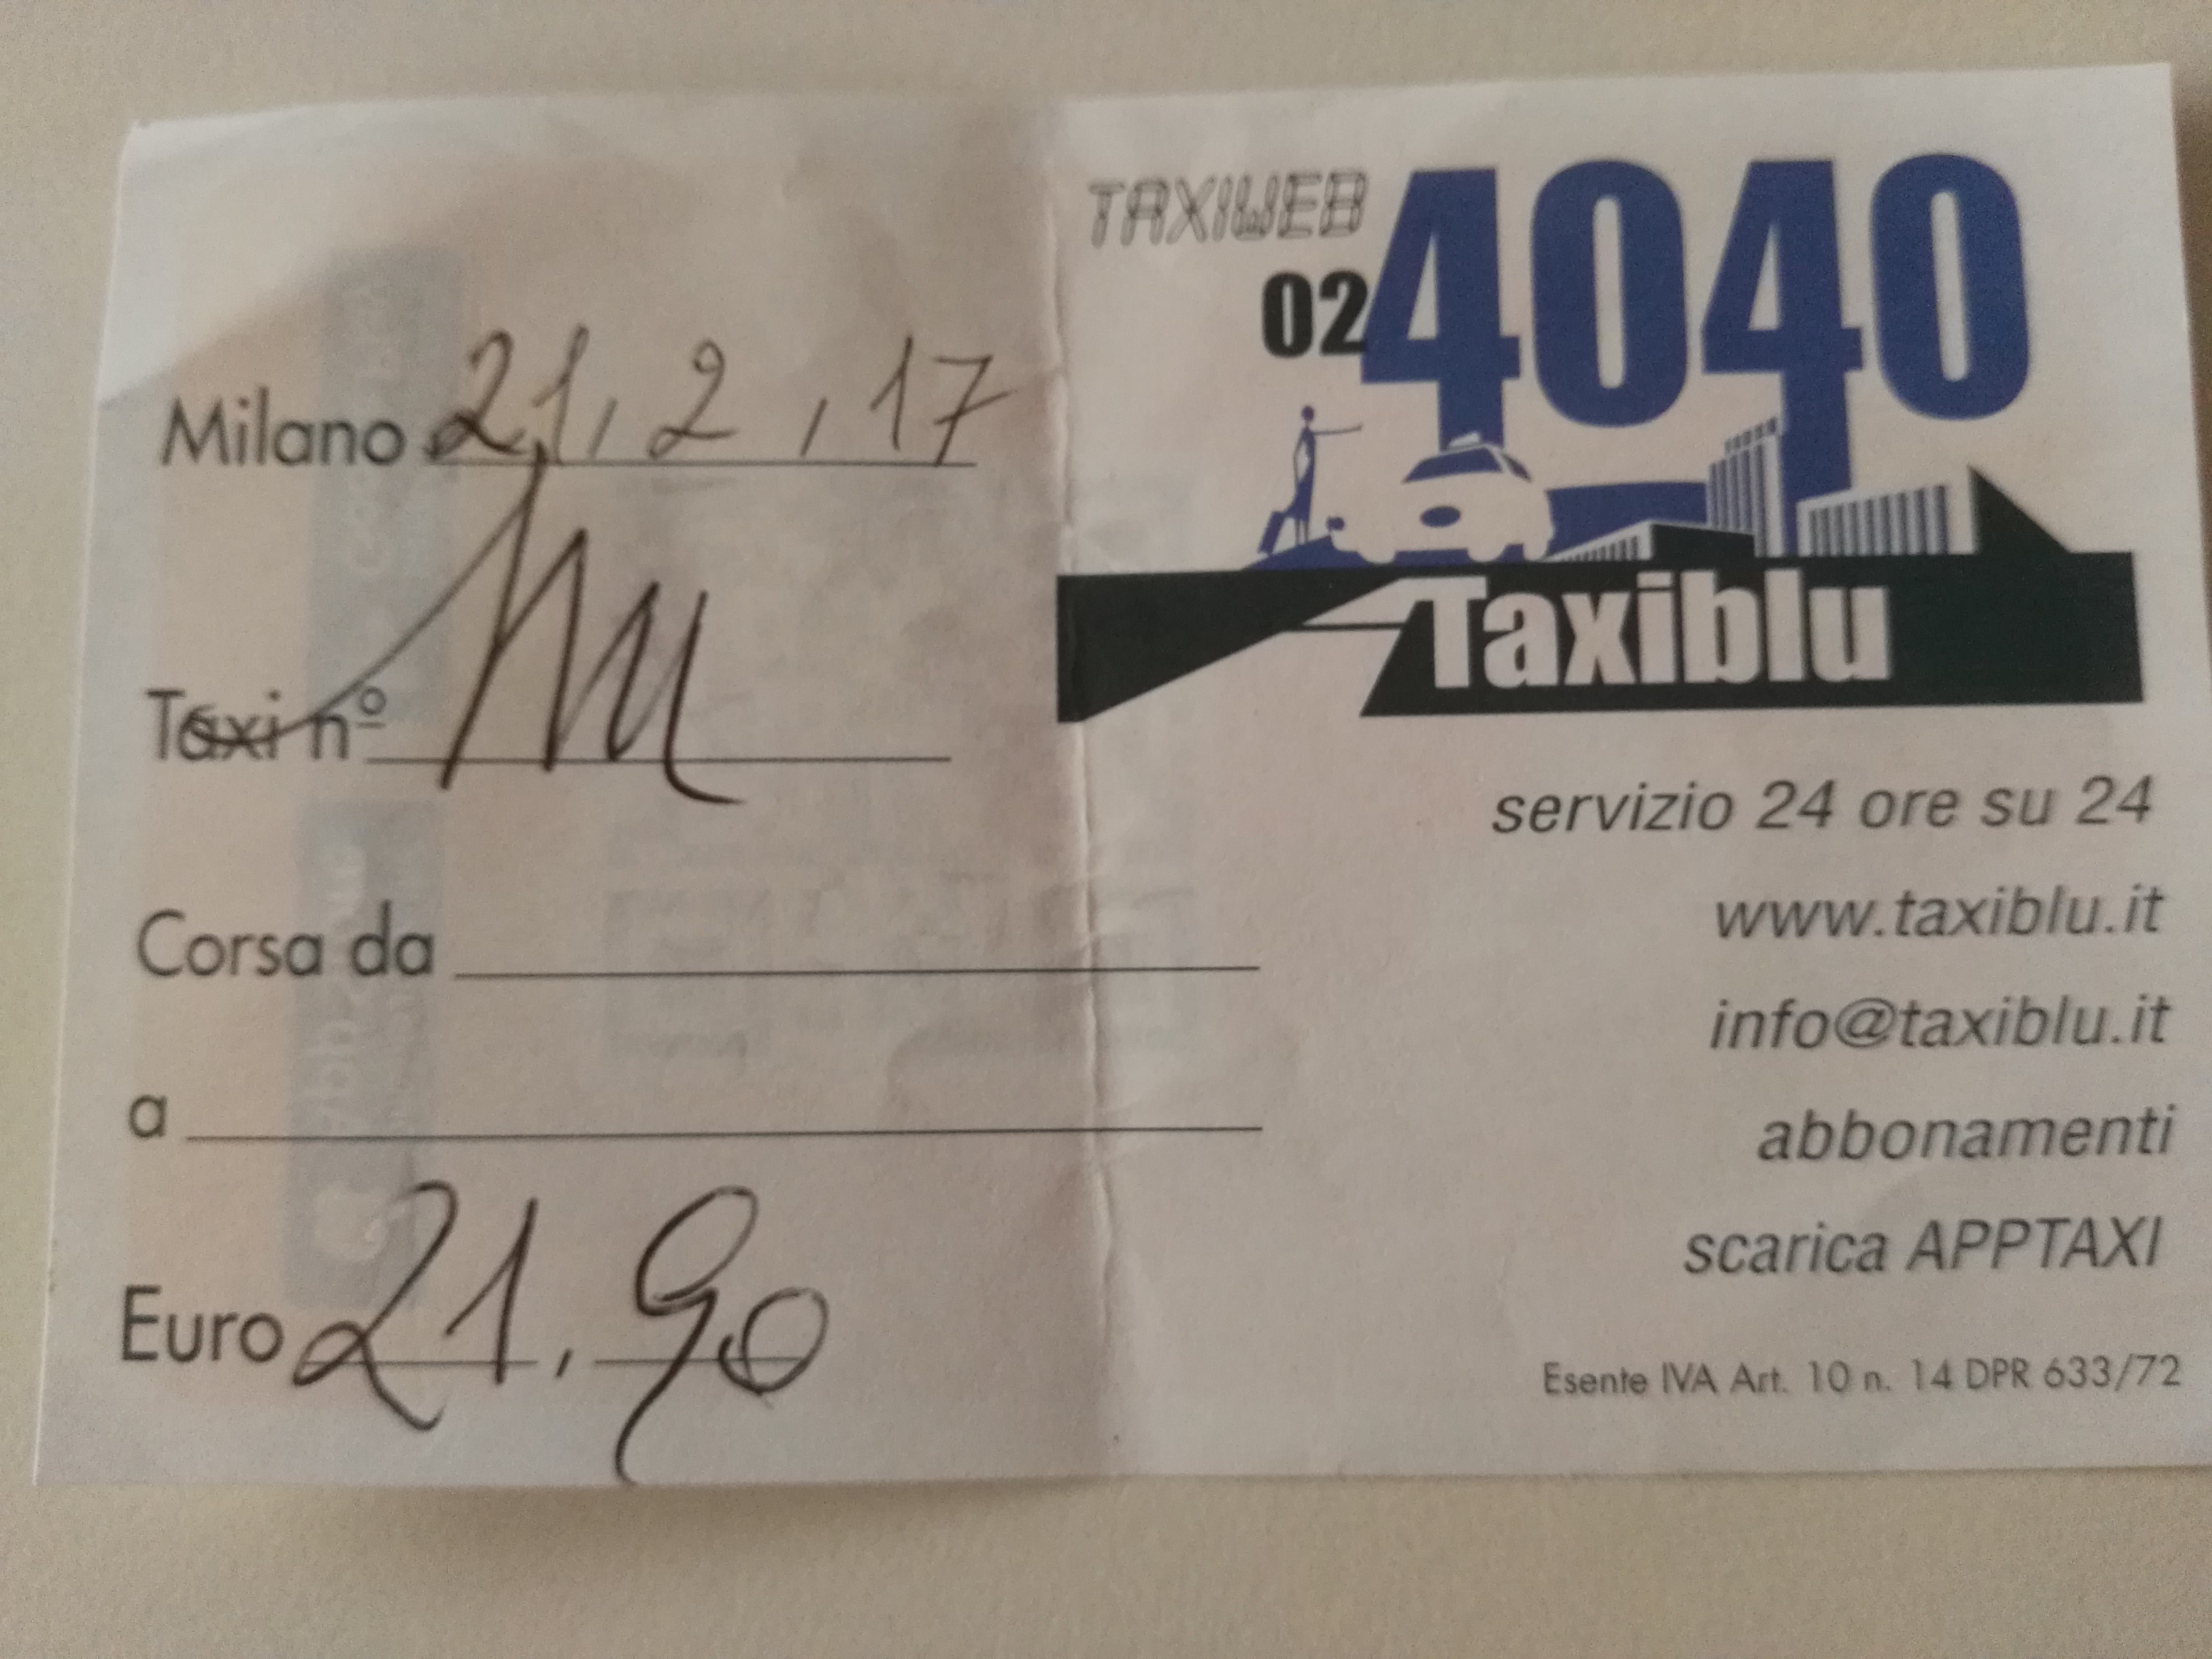 Milano 21, 2, 17
Taxi n°
Corsa da
a
Euro 21,90
TAXIWEB
02 4040
Taxiblu
servizio 24 ore su 24
www.taxiblu.it
info@taxiblu.it
abbonamenti
scarica APPTAXI
Esente IVA Art. 10 n. 14 DPR 633/72